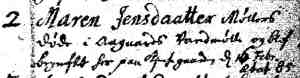 2 Maren Jensdaatter Møllers
døde i Aagaards Vandmølle og blef
begraft her paa Kirkegaarden d 16 Febr.